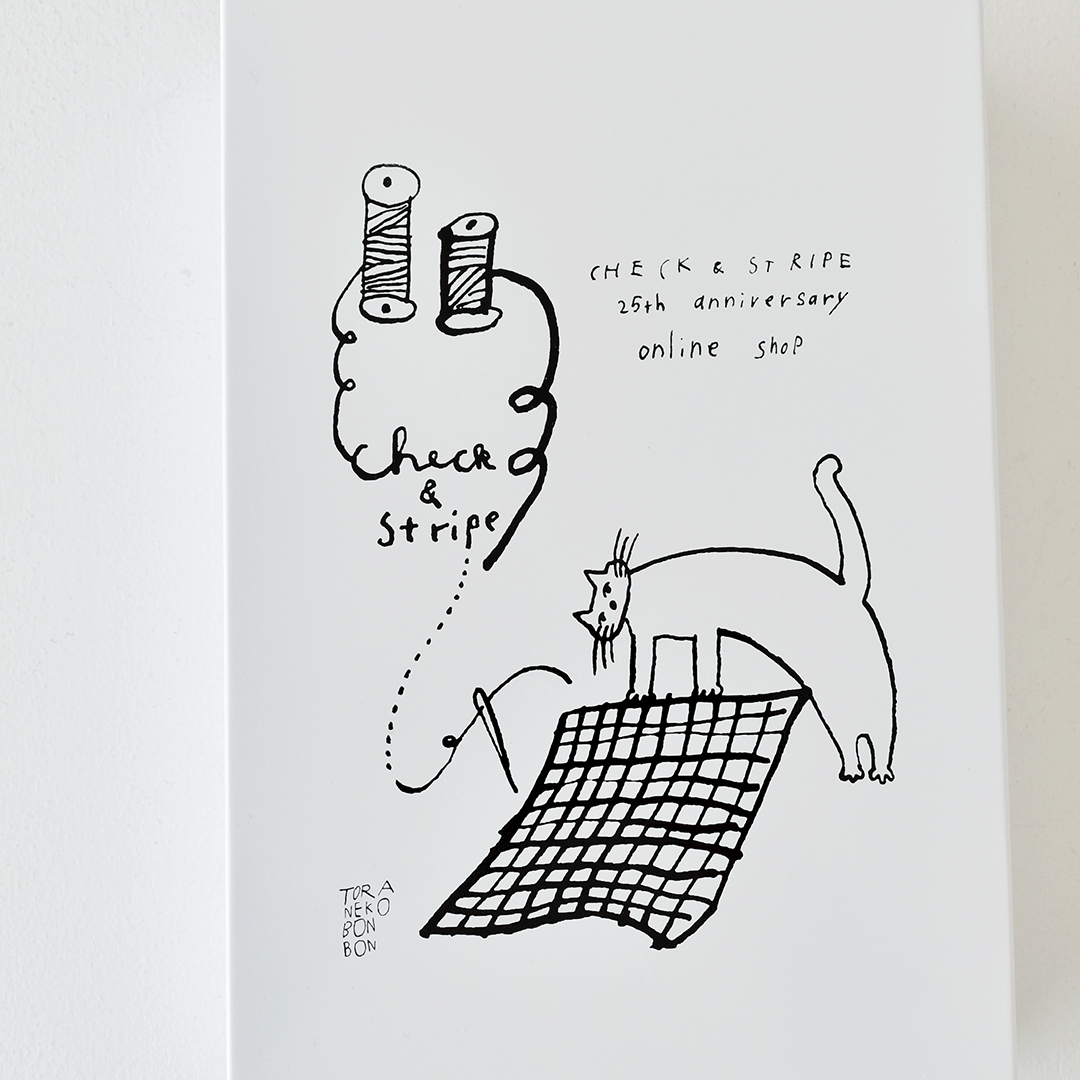 CHECK & STRIPE
25th anniversary
online shop
Check
&
Stripe
TORA
NEKO
BON
BON